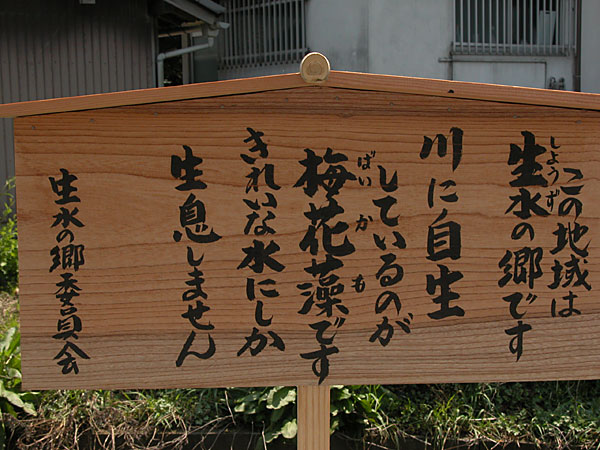 この地域は
生水の郷です
しょうず
川に自生
しているのが
梅花藻です
ばいかも
きれいな水にしか
生息しません
生水の郷委員会